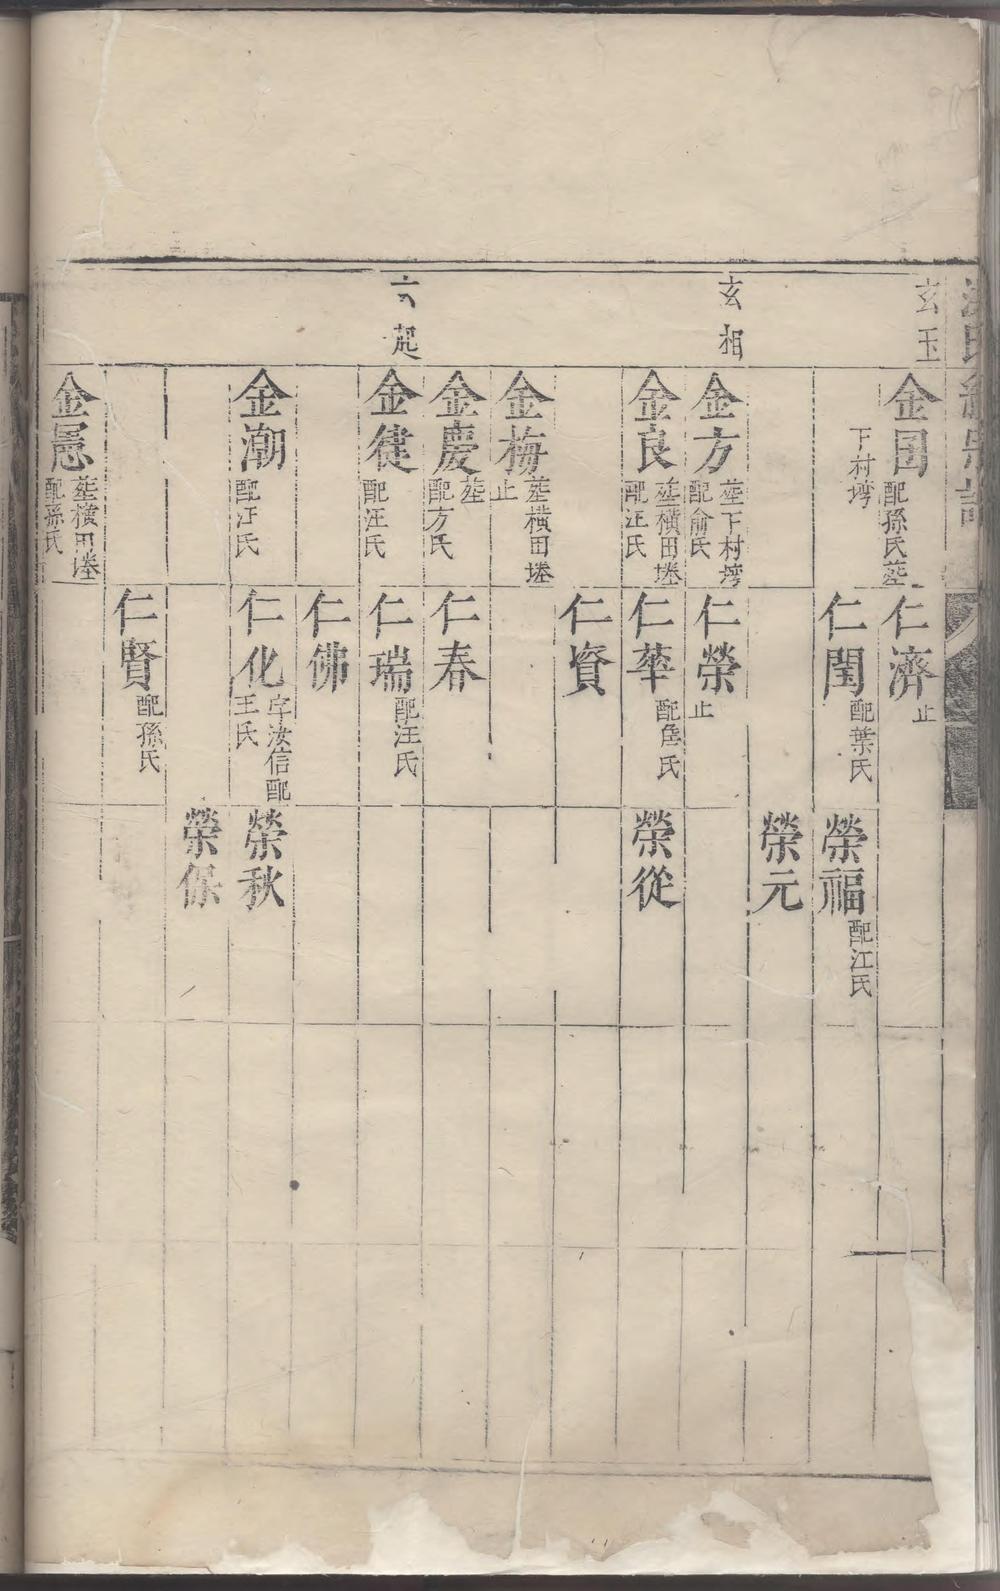 玄玉
金国
配孫氏塟
下村塆
仁濟
止
仁閏
配葉氏
榮福
配江氏
榮元
玄相
金方
塟下村塆
配俞氏
仁榮
止
金良
塟横田塝
配汪氏
仁華
配詹氏
榮從
仁資
金梅
塟横田塝
止
金慶
塟
配方氏
仁春
玄起
金健
配汪氏
仁瑞
配汪氏
仁佛
金潮
配汪氏
仁化
字汝信配
王氏
榮秋
榮保
仁賢
配孫氏
金愿
塟横田塝
配孫氏